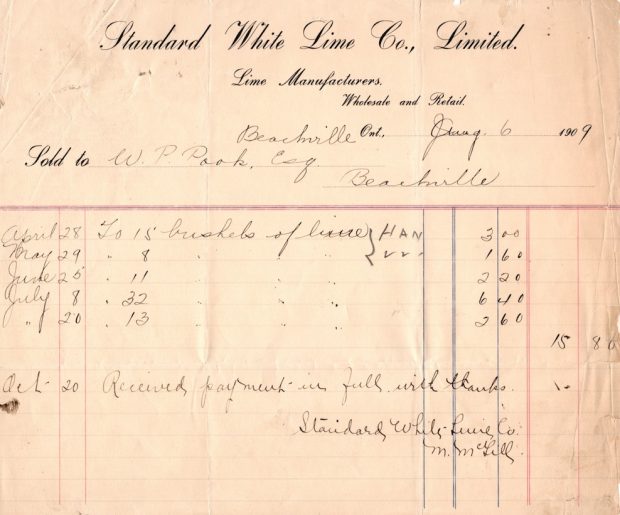 Standard White Lime Co., Limited.
Lime Manufacturers.
Wholesale and Retail.
Beachville Ont., 6 1909
Sold to W. P. Pook, Esq
Beachville
April 28 To 15 bushels of lime } HAN 3 00
May 29 " 8 " " " 1 60
June 25 " 11 " " " 2 20
July 8 " 32 " " " 6 40
" 20 " 13 " " " 2 60
15 80
Oct 20 Received payment in full with thanks.
Standard White Lime Co.
M. McGill